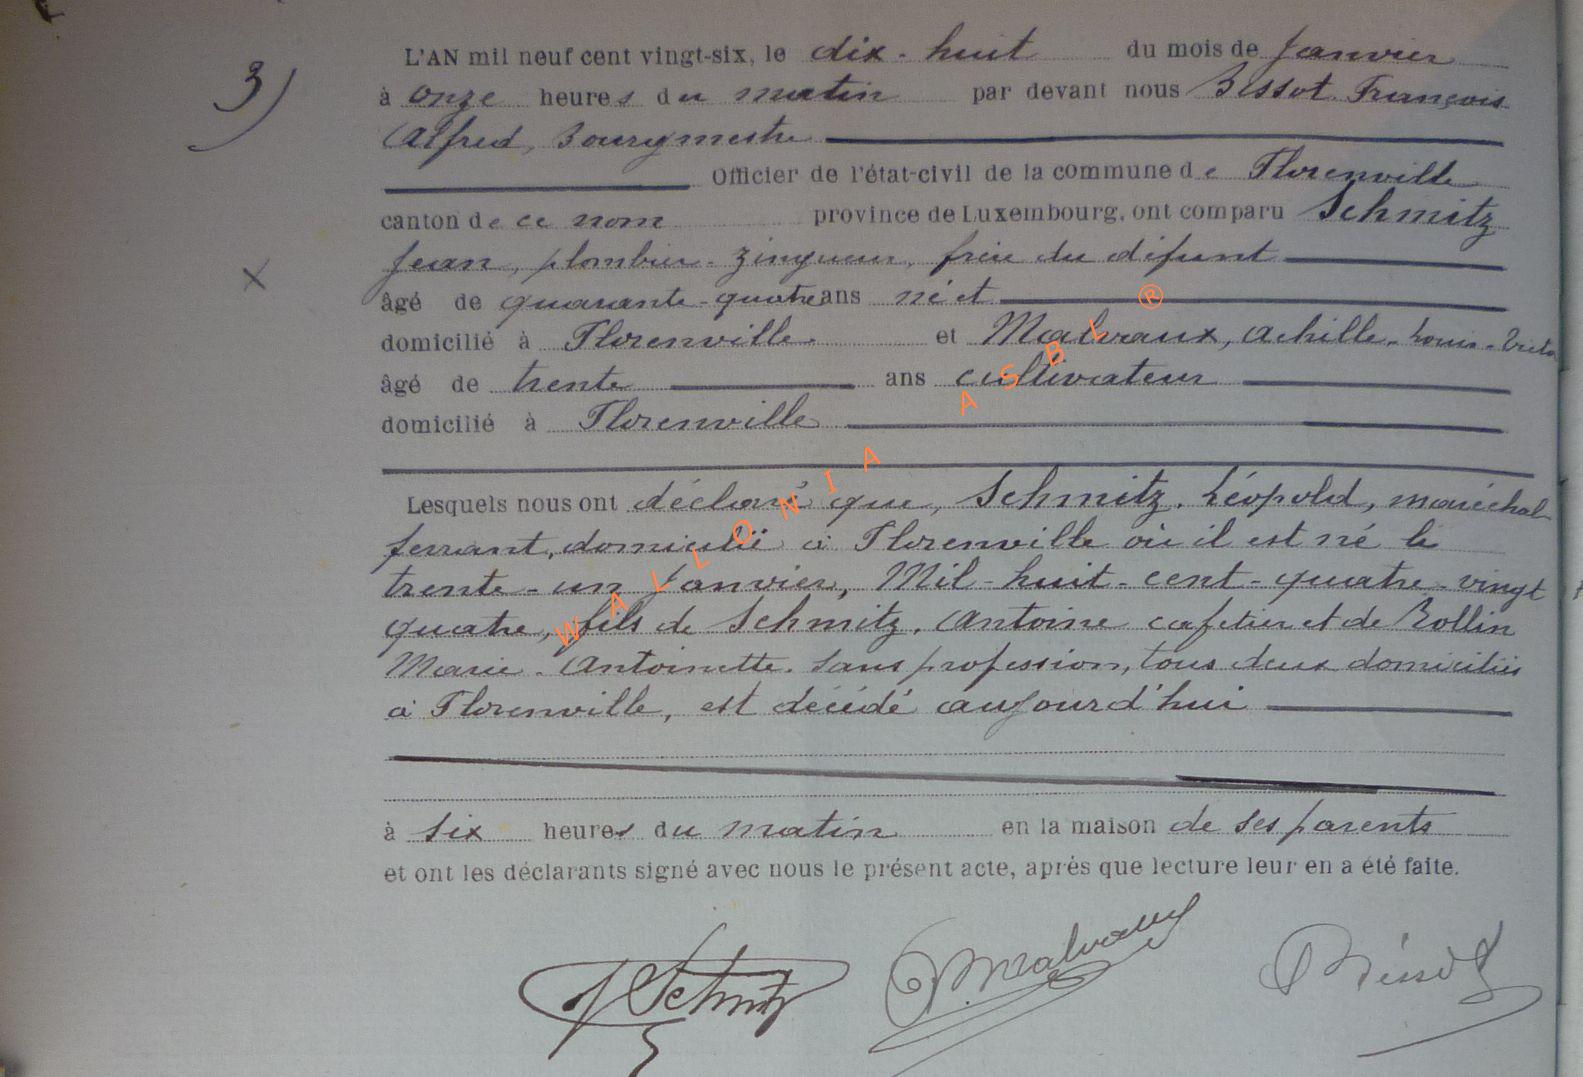 3)
L'AN mil neuf cent vingt-six, le dix-huit du mois de Janvier
à onze heures du matin par devant nous Bissot François
Alfred, Bourgmestre
Officier de l'état-civil de la commune de Florenville
canton de ce nom province de Luxembourg, ont comparu Schmitz
Jean, plombier-zingueur, frère du défunt
âgé de quarante-quatre ans né et
domicilié à Florenville. et Malvaux, Achille-Louis-
âgé de trente ans cultivateur
domicilié à Florenville
Lesquels nous ont déclaré que, Schmitz, Léopold, maréchal
ferrant, domicilié à Florenville où il est né le
trente-un Janvier, Mil-huit-cent-quatre-vingt
quatre, fils de Schmitz, Antoine cafetier et de Rollin
Marie-Antoinette, sans profession, tous deux domiciliés
à Florenville, est décédé aujourd'hui
à six heures du matin en la maison de ses parents
et ont les déclarants signé avec nous le présent acte, après que lecture leur en a été faite.
J Schmitz Malvaux
WALLONIA ASBL ®